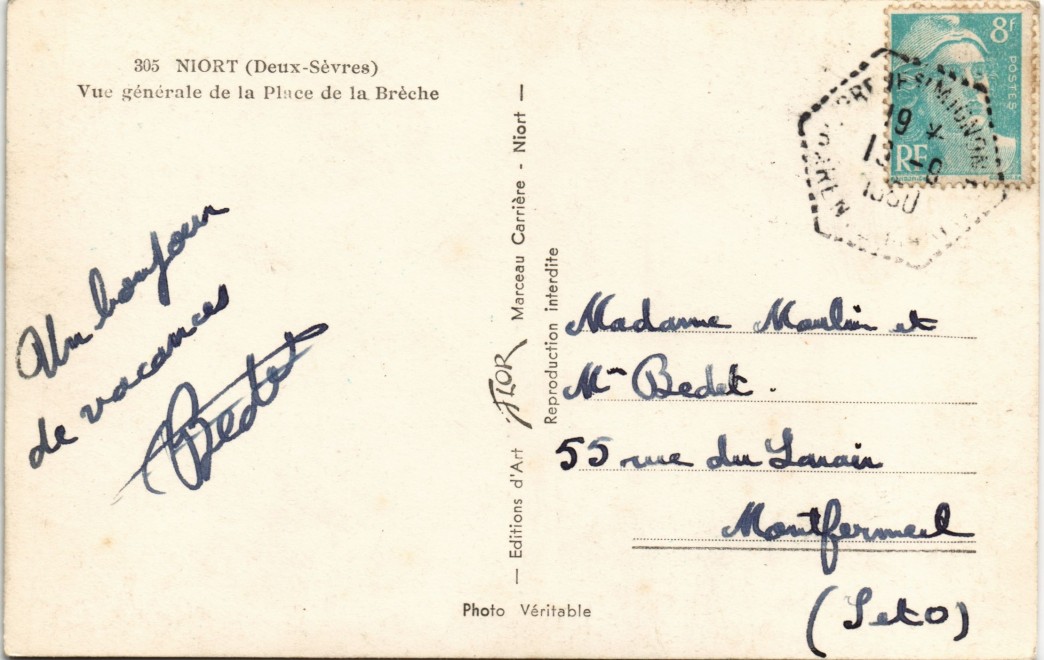 305 NIORT (Deux-Sèvres)
Vue générale de la Place de la Brèche
Un bonjour
de vacances
Bedet
— Editions d'Art FLOR Marceau Carrière - Niort —
Reproduction interdite
Photo Véritable
8f
POSTES
RF
19 *
13 -9
1950
Madame Moulin et
Mr Bedet.
55 rue du
Montfermeil
(S et O)